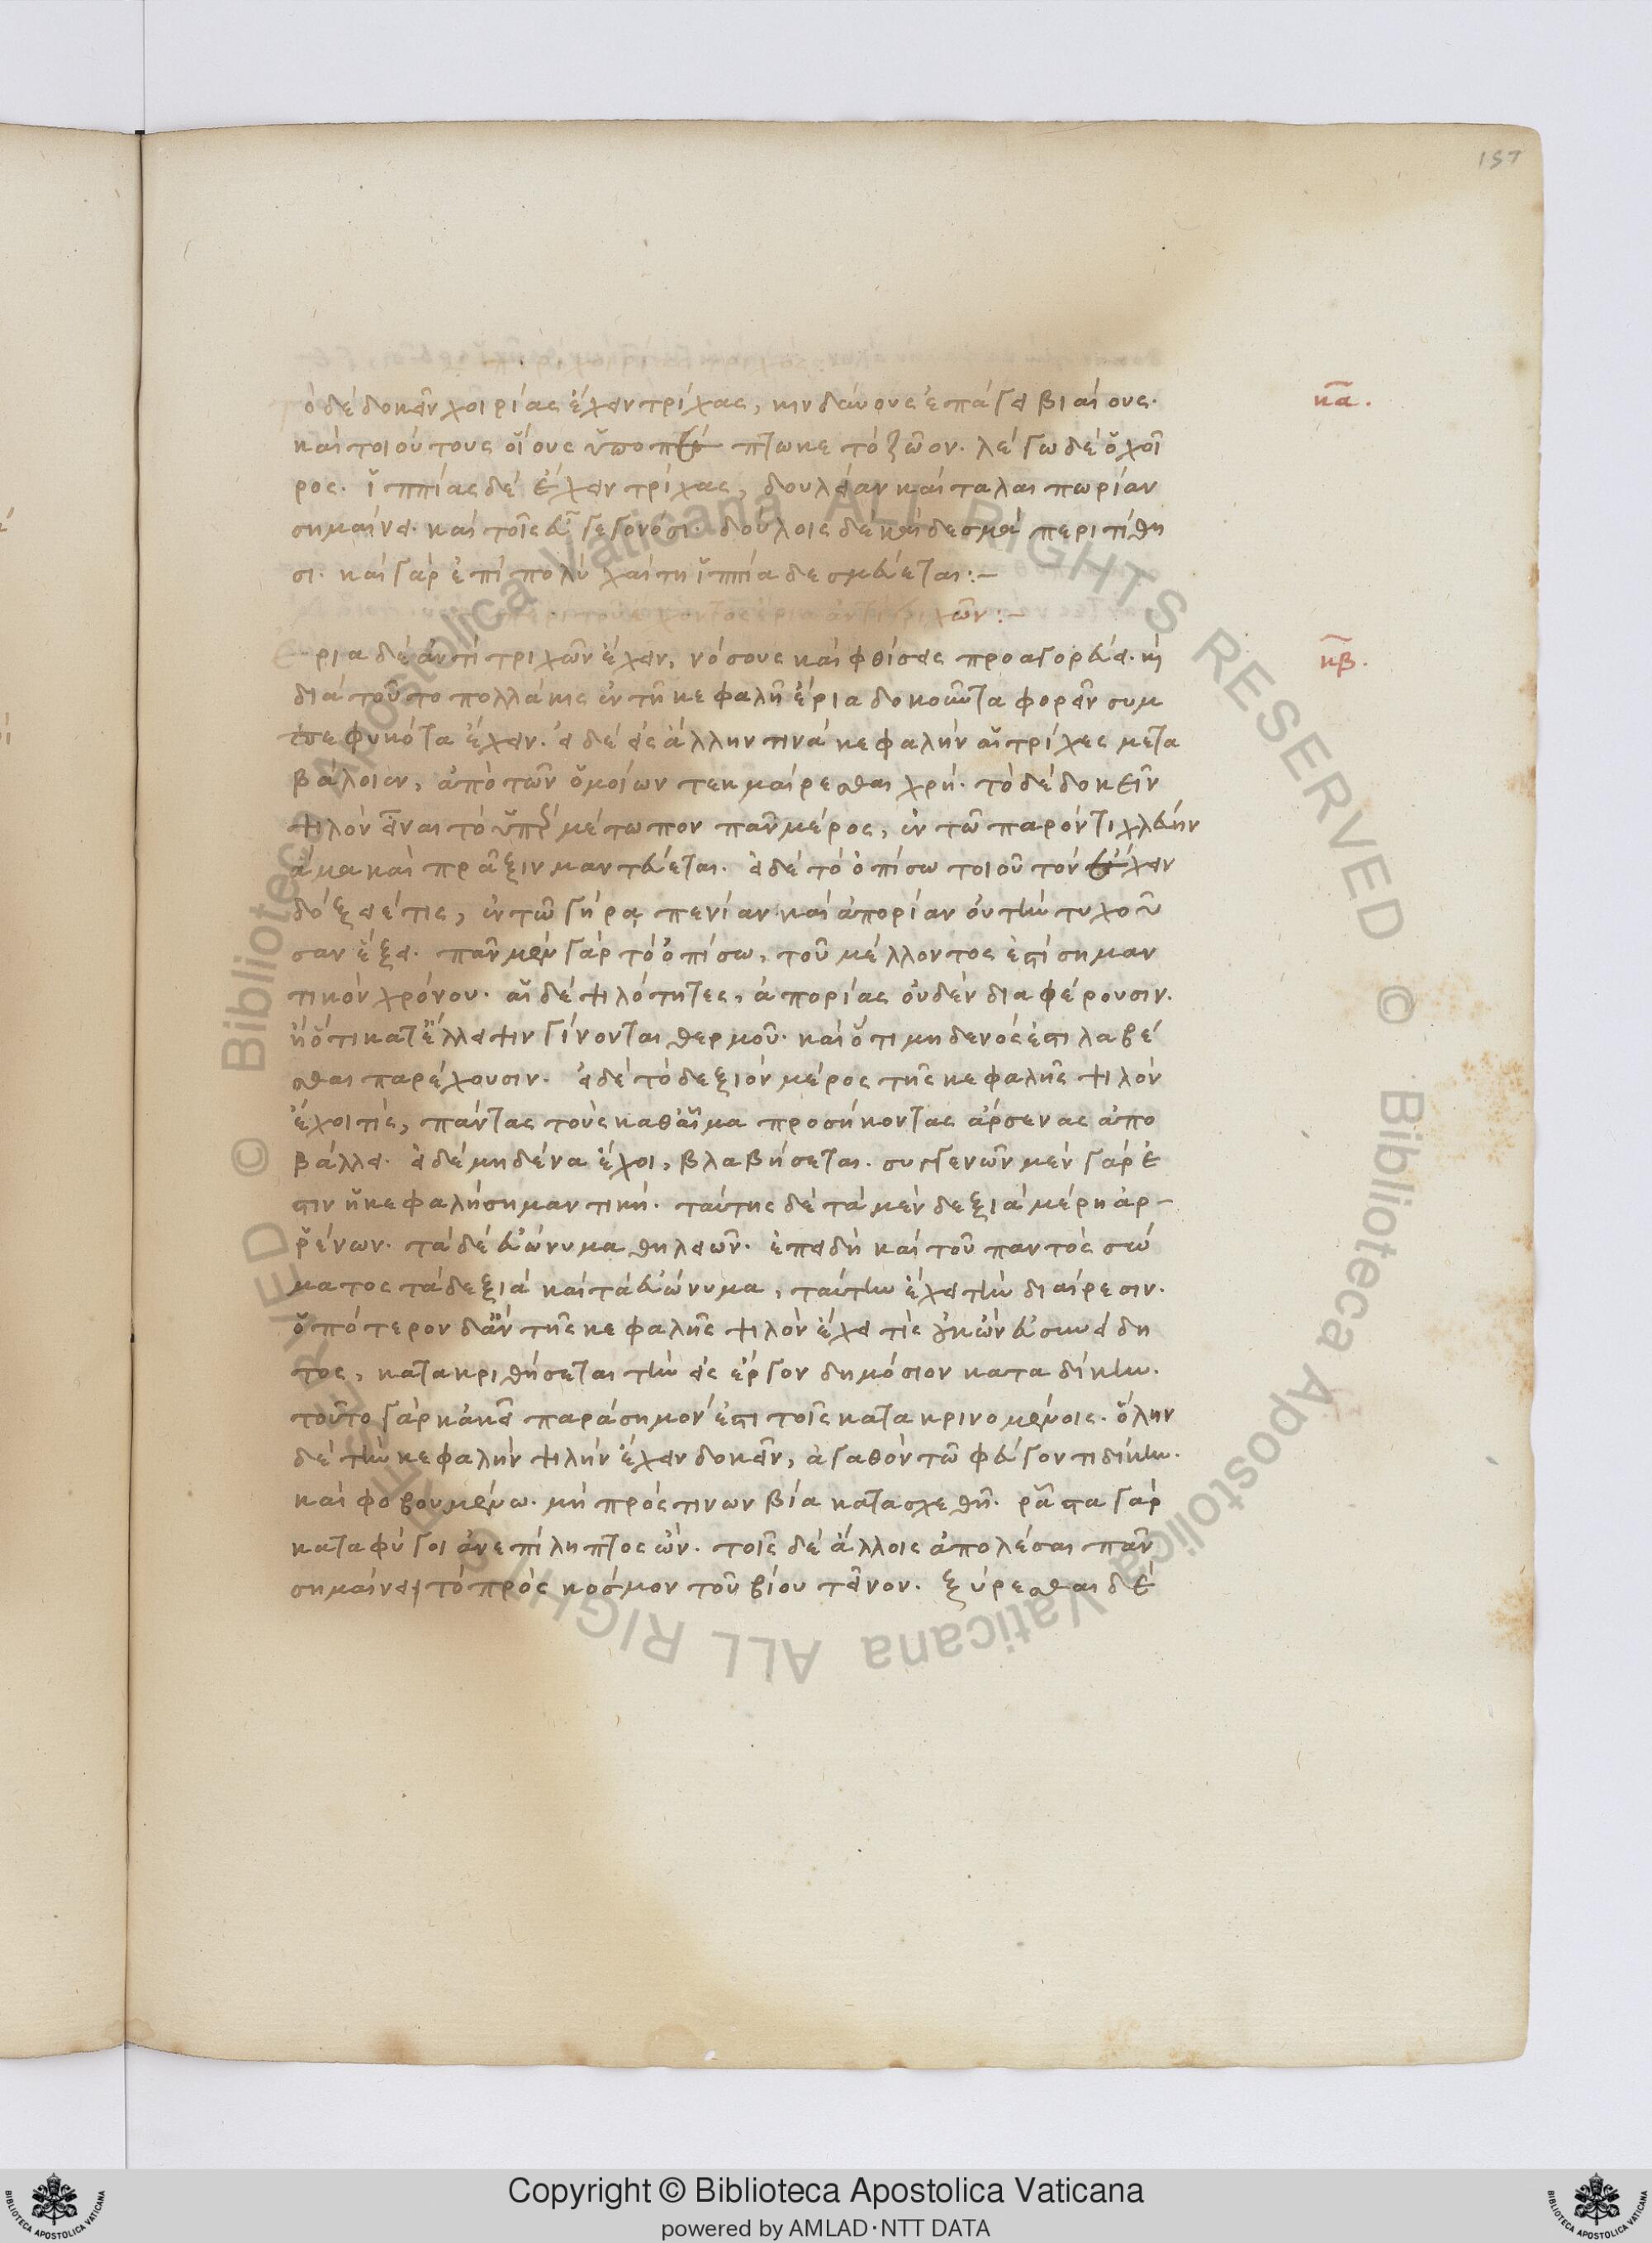 157
ὁ δὲ δοκεῖν χοιρίας ἔχειν τρίχας, κινδύνους ἐπάγει βιαίους.
κα.
καὶ τοιούτους οἵους ὑποπ πτωκε τὸ ζῶον. λέγω δὲ ὁ χοῖ
ρος. ἱππίας δὲ ἔχειν τρίχας, δουλείαν καὶ ταλαιπωρίαν
σημαίνει. καὶ τοῖς εὖ γεγονόσι. δούλοις δὲ καὶ δεσμὰ περιτίθη
σι. καὶ γὰρ ἐπὶ πολὺ χαίτη ἱππία δεσμεύεται:-
περὶ τοῦ ἔχοντος ἔρια ἀντὶ τριχῶν:-
Ἔρια δὲ ἀντὶ τριχῶν ἔχειν, νόσους καὶ φθίσεις προαγορεύει. καὶ
κβ.
διὰ τοῦτο πολλάκις ἐν τῇ κεφαλῇ ἔρια δοκοῦντα φορεῖν συμ
πεφυκότα ἔχειν. εἰ δὲ εἰς ἄλλην τινὰ κεφαλὴν αἱ τρίχες μετα
βάλοιεν, ἀπὸ τῶν ὁμοίων τεκμαίρεσθαι χρή. τὸ δὲ δοκεῖν
ψιλὸν εἶναι τὸ ὑπὲρ μέτωπον πᾶν μέρος, ἐν τῷ παρόντι χλεύην
ἅμα καὶ πρᾶξιν μαντεύεται. εἰ δὲ τὸ ὀπίσω τοιοῦτον ἔχειν
δόξειέ τις, ἐν τῷ γήρᾳ πενίαν καὶ ἀπορίαν οὐ τὴν τυχοῦ
σαν ἕξει. πᾶν μὲν γὰρ τὸ ὀπίσω, τοῦ μέλλοντος ἐστὶ σημαν
τικὸν χρόνου. αἱ δὲ ψιλότητες, ἀπορίας οὐδὲν διαφέρουσιν.
ἢ ὅτι κατ' ἔλλειψιν γίνονται θερμοῦ. καὶ ὅτι μηδενός ἐστι λαβέ
σθαι παρέχουσιν. εἰ δὲ τὸ δεξιὸν μέρος τῆς κεφαλῆς ψιλὸν
ἔχοι τις, πάντας τοὺς καθ' αἷμα προσήκοντας ἄρσενας ἀπο
βάλλει. εἰ δὲ μηδένα ἔχοι, βλαβήσεται. συγγενῶν μὲν γὰρ ἐ
στιν ἡ κεφαλὴ σημαντική. ταύτης δὲ τὰ μὲν δεξιὰ μέρη ἀρ-
ρένων. τὰ δὲ εὐώνυμα θηλειῶν. ἐπειδὴ καὶ τοῦ παντὸς σώ
ματος τὰ δεξιὰ καὶ τὰ εὐώνυμα, ταύτην ἔχει τὴν διαίρεσιν.
ὁπότερον δ' ἂν τῆς κεφαλῆς ψιλὸν ἔχει τὶς ὀκὼν εὐσυνείδη
τος, κατακριθήσεται τὴν εἰς ἔργον δημόσιον καταδίκην.
τοῦτο γὰρ κἀκεῖ παράσημόν ἐστι τοῖς κατακρινομένοις. ὅλην
δὲ τὴν κεφαλὴν ψιλὴν ἔχειν δοκεῖν, ἀγαθὸν τῷ φεύγοντι δίκην.
καὶ φοβουμένω. μὴ πρός τινων βία κατασχεθῇ. ῥᾶστα γὰρ
καταφύγοι ἀνεπίληπτος ὤν. τοῖς δὲ ἄλλοις ἀπολέσαι πᾶν
σημαίνει τὸ πρὸς κόσμον τοῦ βίου τεῖνον. ξύρεσθαι δὲ
© Biblioteca Apostolica Vaticana ALL RIGHTS RESERVED © Biblioteca Apostolica Vaticana ALL RIGHTS RESERVED
Copyright © Biblioteca Apostolica Vaticana
powered by AMLAD·NTT DATA
BIBLIOTECA APOSTOLICA VATICANA
BIBLIOTECA APOSTOLICA VATICANA